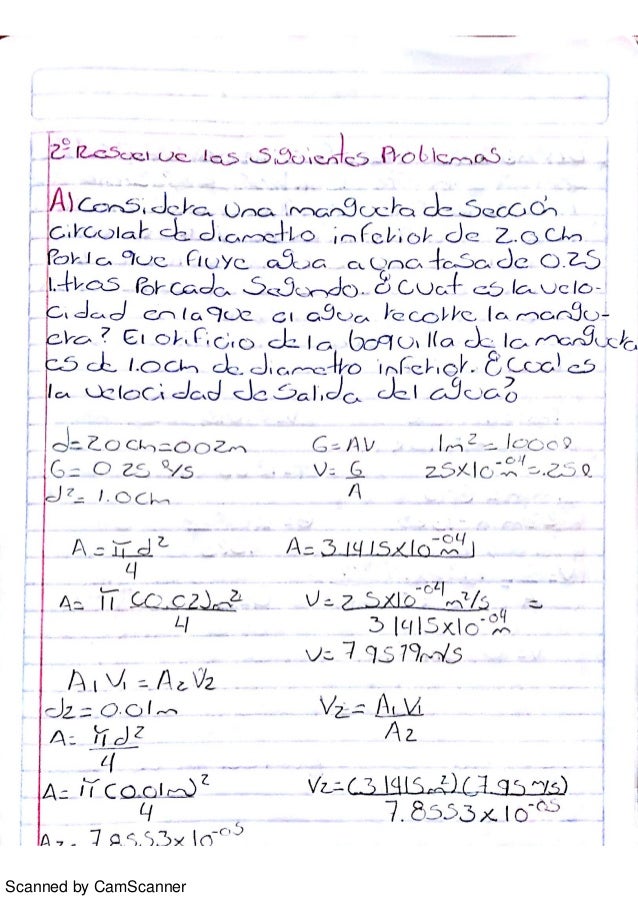 2º Resuelve los Siguientes Problemas.
A) Considera una manguera de Sección
circular de diametro inferior de 2.0cm
Por la que fluye agua a una tasa de 0.25
litros Por cada Segundo. ¿Cual es la velo-
cidad en la que el agua recorre la mangu-
era? El orificio de la boquilla de la manguera
es de 1.0cm de diametro inferior. ¿Cual es
la velocidad de Salida del agua?
d=2.0cm=0.02m G=AV 1m²=1000l
G= 0.25 l/s V= G/A 25x10⁻⁰⁴m=.25l
d²= 1.0cm
A= πd²/4 A= 3.1415x10⁻⁰⁴m
A= π(0.02)m²/4 V= 2.5x10⁻⁰⁴m²/s / 3.1415x10⁻⁰⁴m =
V= 7.9579m/s
A₁V₁=A₂V₂
d2=0.01m V2= A₁V₁/A2
A= πd²/4
A= π(0.01m)²/4 V2=(3.1415m²)(7.95m/s)/7.8553x10⁻⁰⁵
A2= 7.8553x10⁻⁰⁵
Scanned by CamScanner